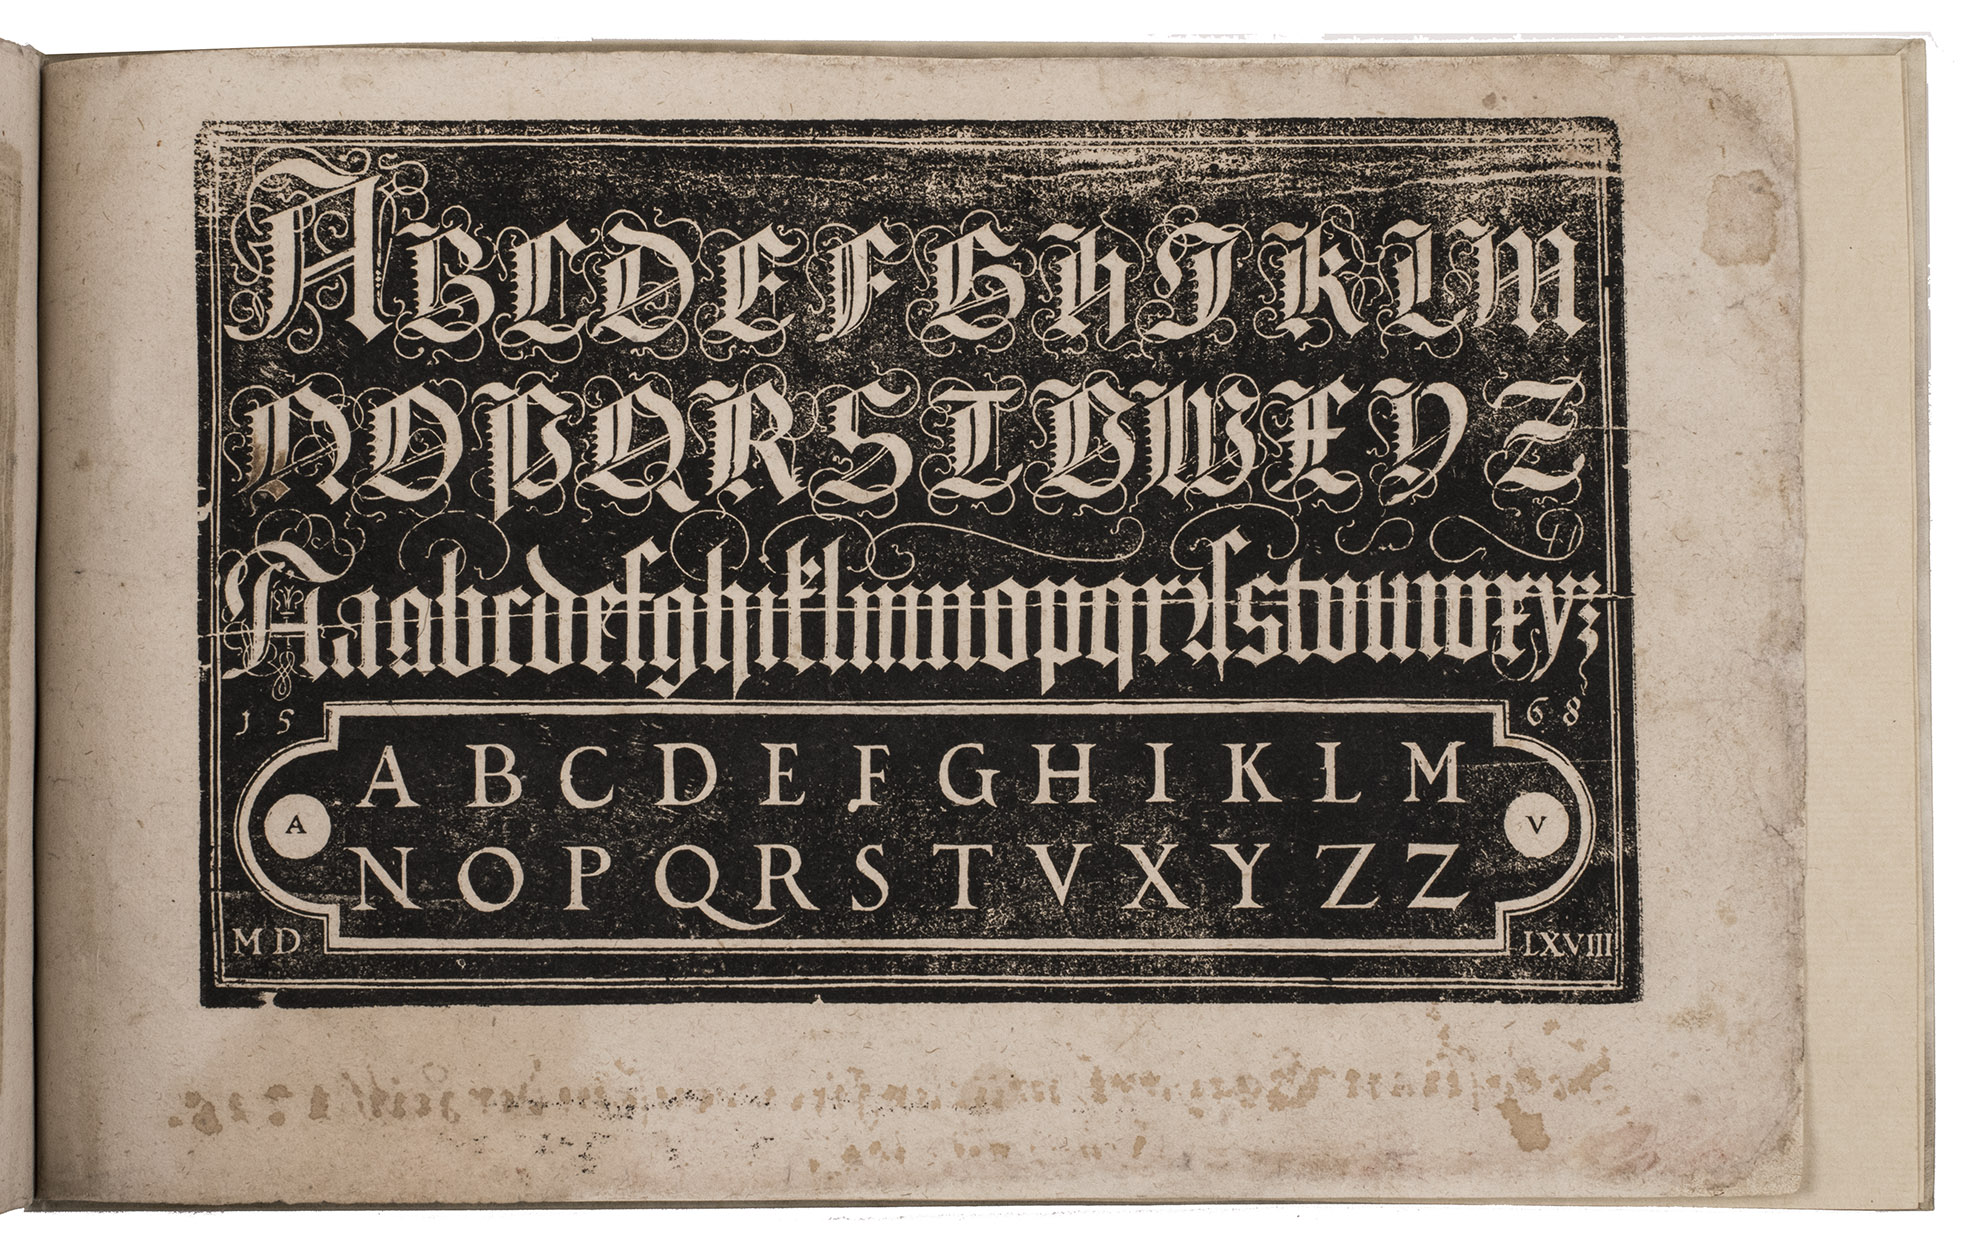 A B C D E F G H I K L M
N O P Q R S T V W X Y Z
A a a b c d e f g h i k l m n o p q r ꝛ ſ s t v u w x y z
15 68
A B C D E F G H I K L M
A V
N O P Q R S T V X Y Z Z
MD LXVIII